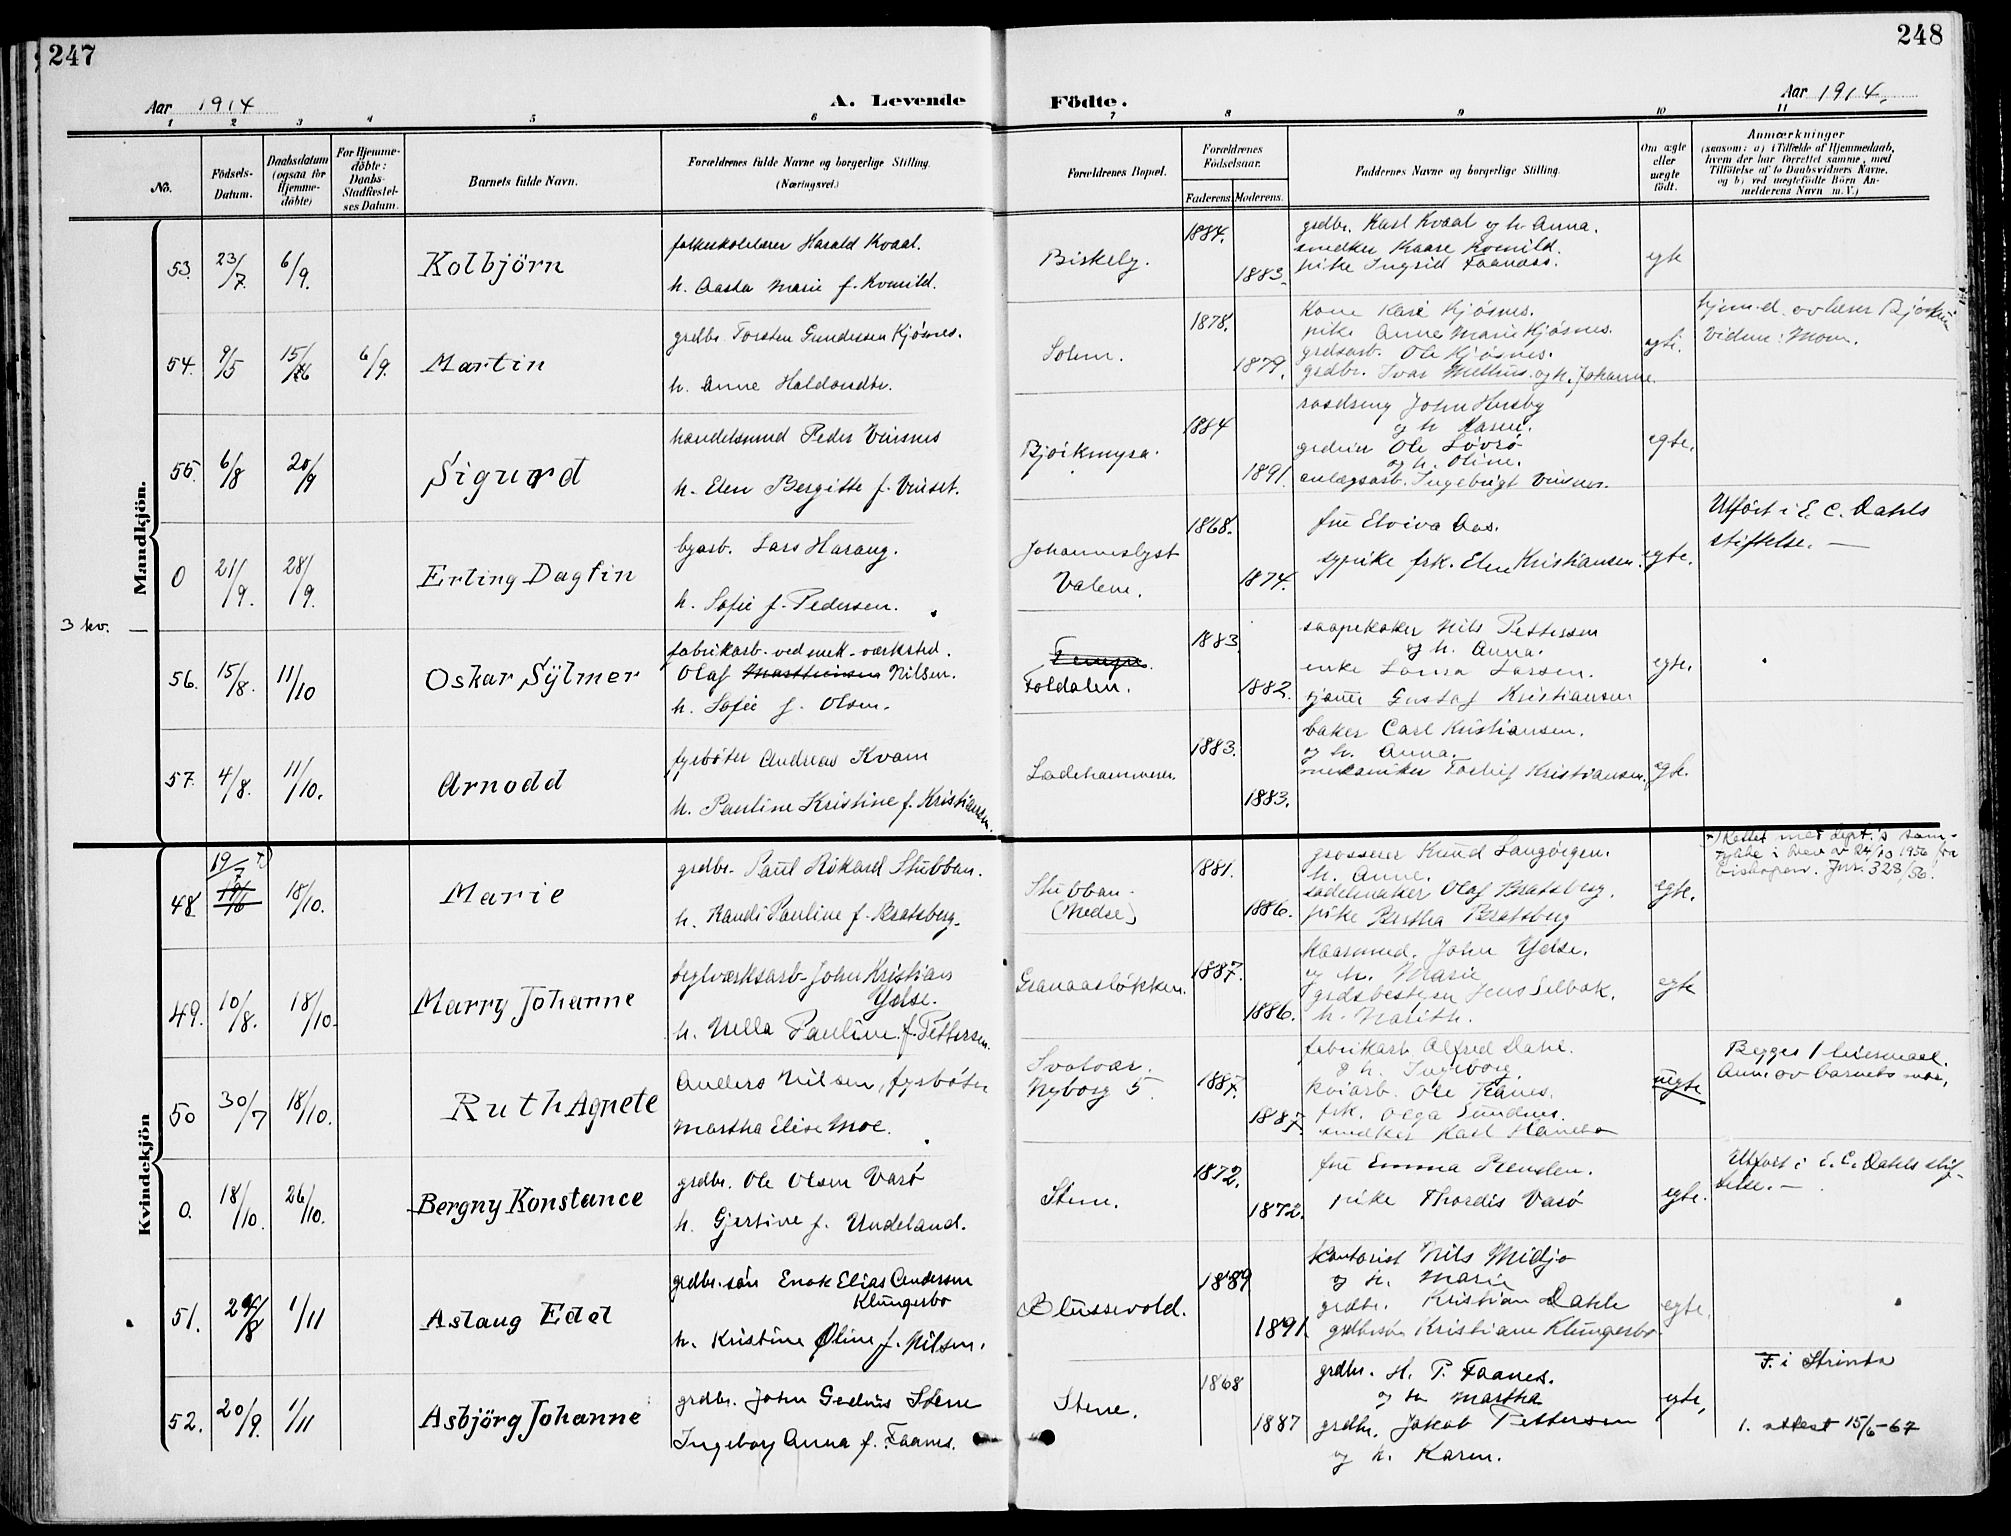 247
248
Aar 1914
A. Levende
Födte.
Aar 1914.
1 2 3 4 5 6 7 8 9 10 11
No.
Födsels-
Datum.
Daabsdatum
(ogsaa for
Hjemme-
döbte)
For Hjemme-
döbte:
Daabs-
Stadfæstel-
ses Datum.
Barnets fulde Navn.
Forældrenes fulde Navne og borgerlige Stilling.
(Næringsvei.)
Forældrenes Bopæl.
Forældrenes
Födselsaar.
Faderens. Moderens.
Faddernes Navne og borgerlige Stilling.
Om ægte
eller
uægte
født.
Anmærkninger
(saasom: a) i Tilfælde af Hjemmedaab,
hvem der har forrettet samme, med
Tilföielse af to Daabsvidners Navne,
og b) ved uægtefödte Börn An-
melderens Navn m. V.)
Mandkjön.
53. 23/7. 6/9. Kolbjörn
folkeskolelærer Harald Kvaal.
h. Aasta Marie f. Kvenild.
Biskeby.
1884.
1883.
grdbr. Karl Kvaal og h. Anna.
snedker Kaare Kvenild.
pike Ingrid Faanæss.
egte
54. 9/5 15/6 6/9. Martin
grdbr. Torsten Gundersen Kjøsnes.
h. Anne Haldorsdtr.
Solem.
1878.
1879.
Kone Kari Kjøsnes.
pike Anne Marie Kjøsnes.
grdsarb. Ole Kjøsnes.
grdbr. Ivar Melhus. og h. Johanne.
egte.
hjemd. av lærer
Vidne: Mom.
55. 6/8 20/9 Sigurd
handelsmnd Peder Vinsnes
h. Elen Bergitte f. Vuset.
Bjørkmyra.
1884
1891.
John Husby
og h. Karen.
Ole Løvrø
og h. Oline.
anlægsarb. Ingebrigt Vinsnes.
egte.
0 21/9. 28/9. Erling Dagfin
byarb. Lars Haraug.
h. Sofie f. Pedersen.
Johanneslyst
Valene.
1868.
1874.
frue Elvira Aas.
sypike frk. Elen Kristiansen.
egte.
Utført i E. C. Dahls
stiftelse. —
3 kv. —
56. 15/8. 11/10 Oskar Sylmer
fabrikarb. ved mek. værksted.
Olaf Matthiensen Nilsen.
h. Sofie f. Olsen.
Foldalen.
1883
1882.
saapekoker Nils Pettersen
og h. Anna.
enke Lovisa Larsen.
Gustaf Kristiansen
egte.
57. 4/8. 11/10. Arnodd
fyrbøter Andreas Kvam
h. Pauline Kristine f. Kristiansen.
Ladehammeren.
1883.
1883.
baker Carl Kristiansen.
og h. Anna.
mekaniker Torleif Kristiansen.
egte.
Kvindekjön
48. 19/7 x) 19/6 18/10. Marie
grdbr. Paul Rikard Stubban.
h. Randi Pauline f. Bratsberg.
Stubban.
(Nedse)
1881.
1886.
grosserer Knud Langørgen.
h. Anne.
sadelmaker Olaf Bratsberg.
pike Bertha Bratsberg
egte.
x) Rettet med dept.'s sam-
tykke i brev av 24/10 1956 fra
biskopen. Jnr. 328/56.
49. 10/8. 18/10. Marry Johanne
teglværksarb. John Kristian
Ydse.
h. Nella Pauline f. Pettersen.
Granaasløkken.
1887.
1886.
kaarmnd. John Ydse.
og h. Marie
grdsbestyrer Jens Selbak.
h. Marith.
egte
50 30/7 18/10. Ruth Agnete
Anders Nilsen, fyrbøter
Martha Elise Moe.
Svolvær.
Nyborg 5.
1887.
1887.
fabrikarb. Alfred Dahl.
og h. Ingeborg.
Ole Hanes.
frk. Olga Sundnes.
snedker Karl
uegte
Begges 1 leiermaal.
Anm. av barnets mor.
0. 18/10. 26/10. Bergny Konstance
grdbr. Ole Olsen Varø
h. Gjertine f. Undeland.
Stene.
1872.
1872.
frue Emma
pike Thordis Varø
egte.
Utført i E. C. Dahls stif-
telse. —
51. 29/8 1/11 Aslaug Edel
grdbr. søn Enok Elias Andersen
Klungerbo
h. Kristine Oline f. Nilsen.
Blussevold.
1889
1891.
kontorist Nils Midjo
og h. Marie
grdbr. Kristian Dahle
Kristiane Klungerbo
egte.
52. 20/9. 1/11 Asbjörg Johanne
grdbr. John Gedeus Stene
Ingeborg Anna f. Faanes.
Stene.
1868
1887
grdbr. H. P. Faanes.
og h. Martha
grdbr. Jakob Pettersen
og h. Karen.
egte,
F. i Strinda
1. attest 15/6-67